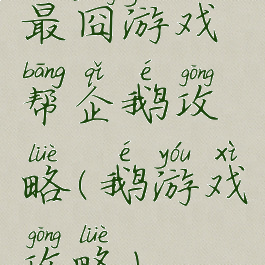 最囧游戏
bāng qǐ é gōng
帮企鹅攻
lüè é yóu xì
略(鹅游戏
gōng lüè
攻略)